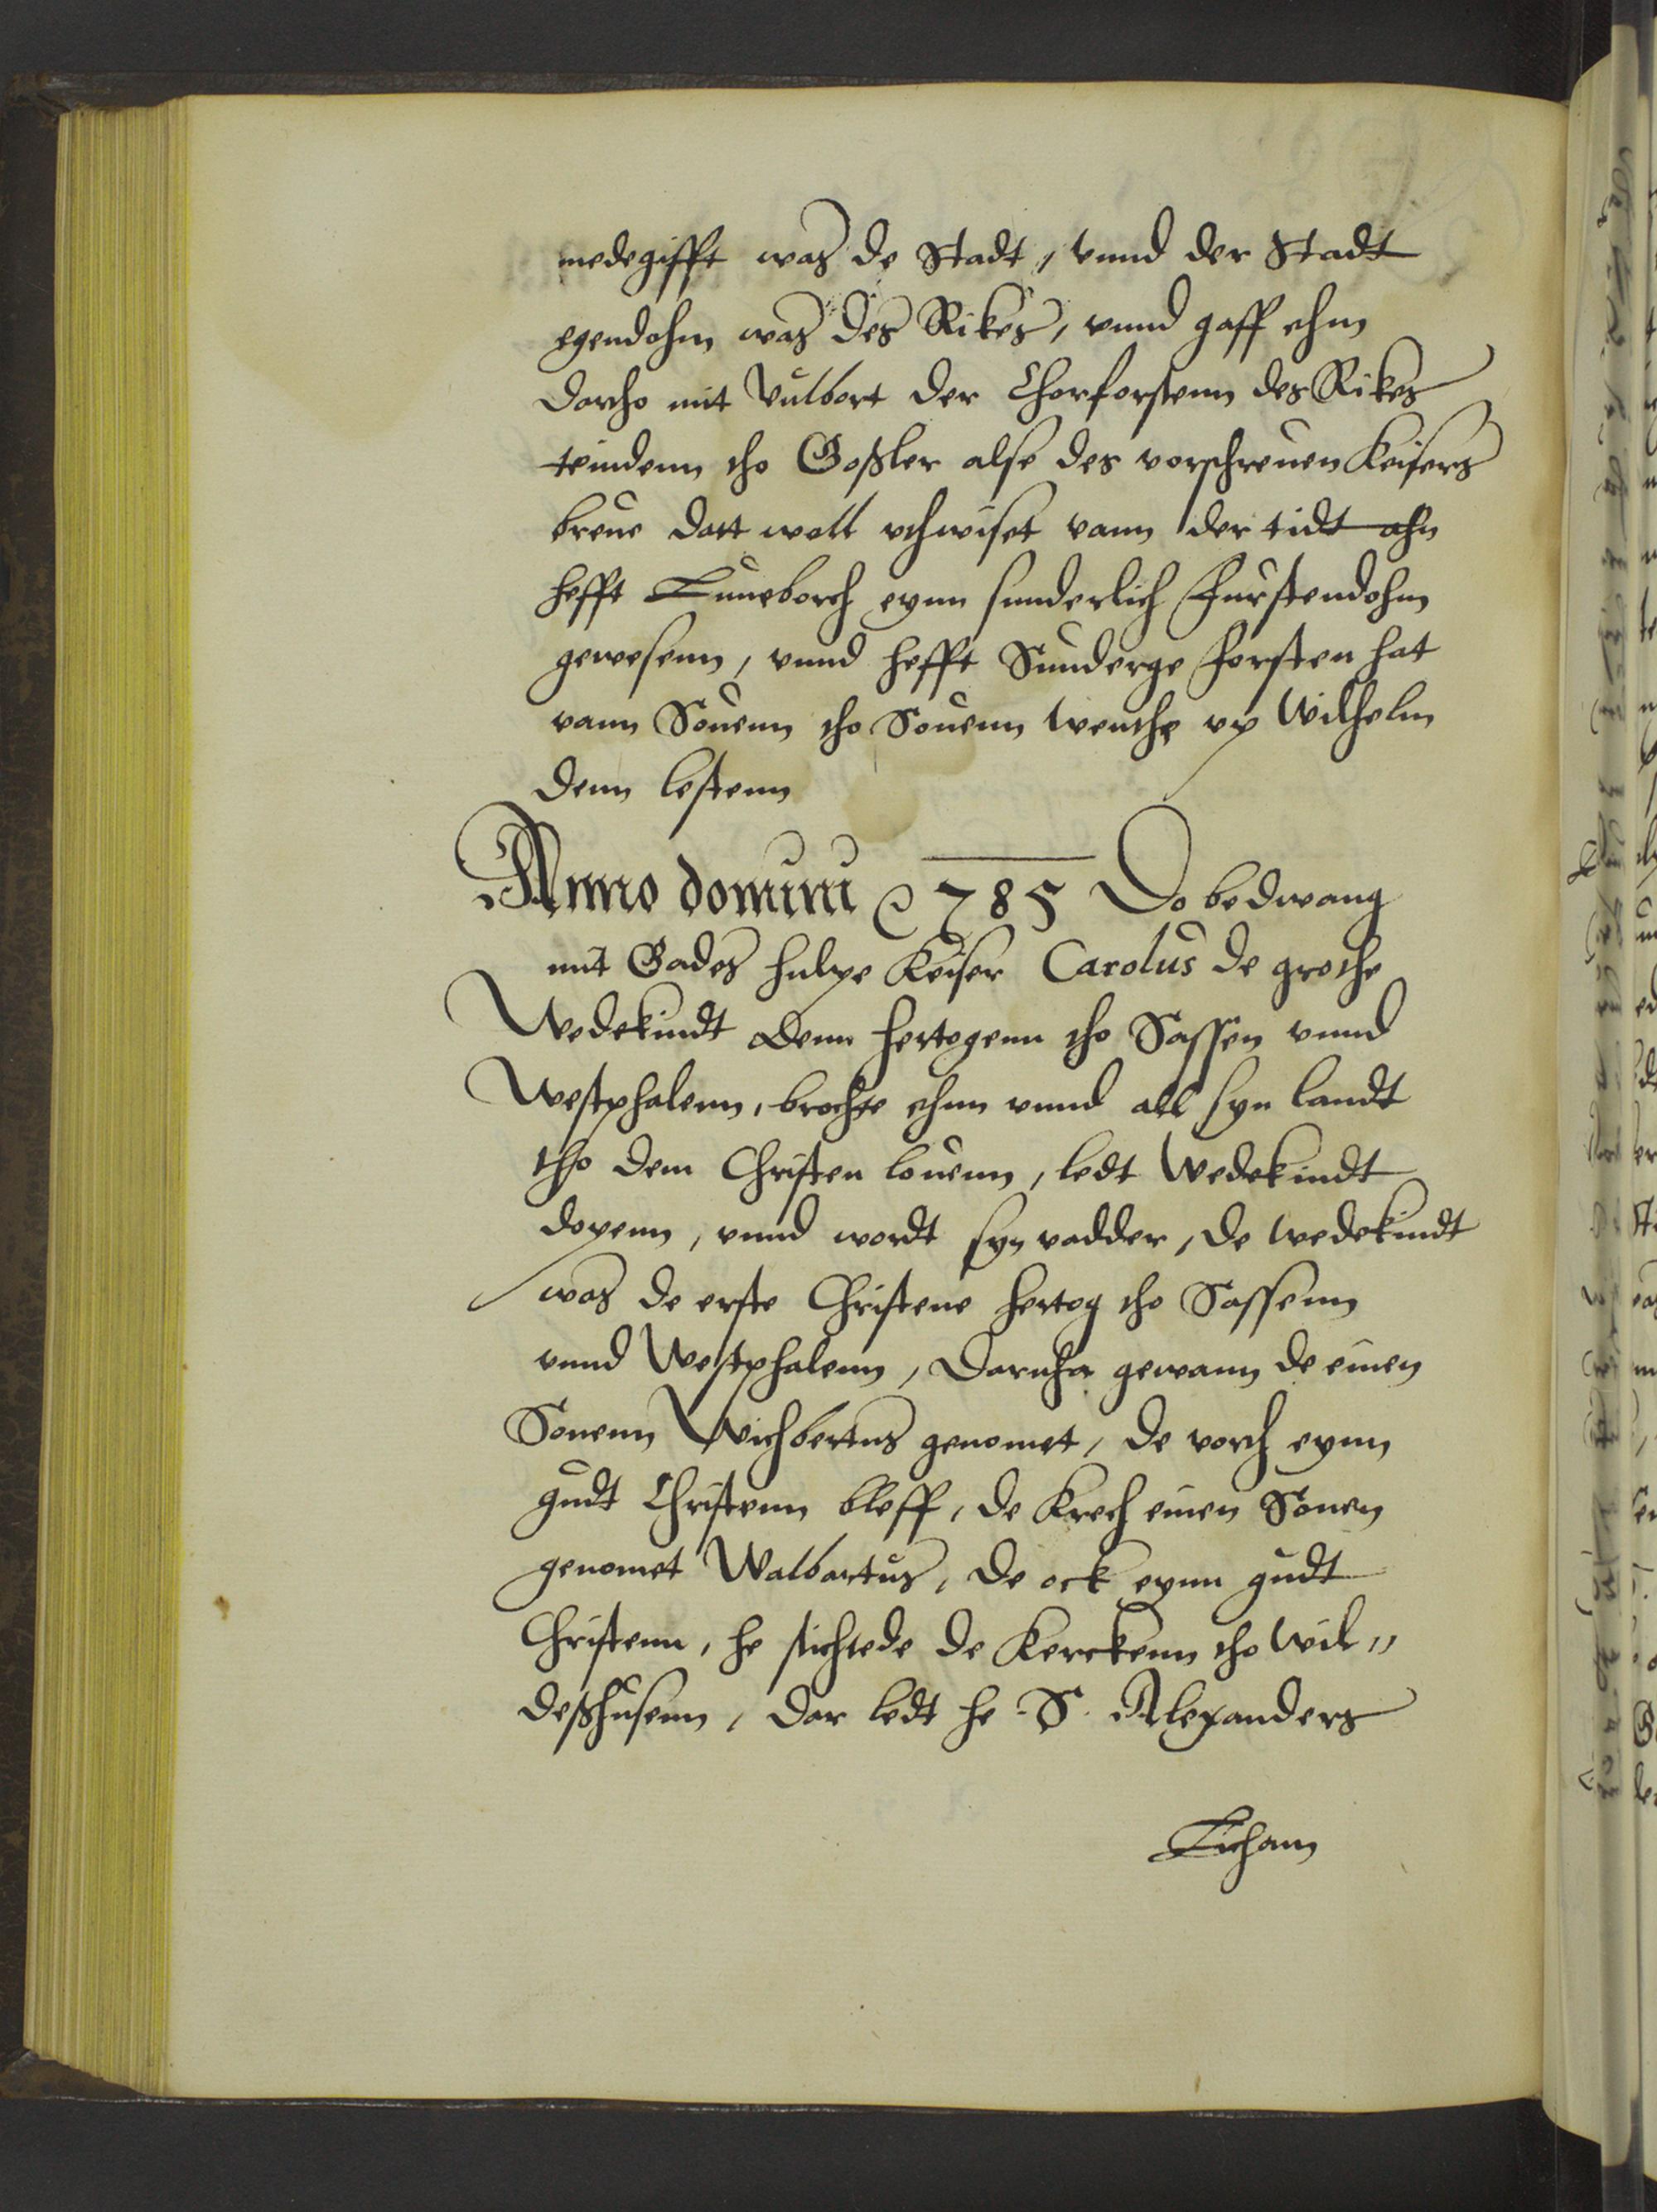 medegifft was de Stadt, vnnd der Stadt
egendohm was des Rikes, vnnd gaff ehm
dartho mit Vulbort der Chorforstenn des Rikes
teindenn tho Goßler alse des vorschreuen Keisers
breue datt woll vthwiset vann der tidt ahn
hefft Luneborch eynn sunderlich Furstendohm
gewesenn, vnnd hefft Sunderge Forsten hat
vann Sonenn tho Sonenn wenthe vp Wilhelm
denn lestenn
Anno domini 785 Do bedwang
mit Gades hulpe Keiser Carolus de grothe
Wedekindt denn Hertogenn tho Sassen vnnd
Westphalenn, brochte ehnn vnnd all syn landt
tho dem Christen louenn, ledt Wedekindt
dopenn, vnnd wordt syn vadder, de wedekindt
was de erste Christene Hertog tho Sassenn
vnnd Westphalenn, Darnha gewann de einen
Sonenn Wichbertus genomet, de vorth eynn
gudt Christenn bleff, de Krech einen Sonen
genomet Walbartus, de ock eynn gudt
Christenn, he stichtede de Kerckenn tho Wil„
deßhusenn, dar ledt he S. Alexanders
Licham